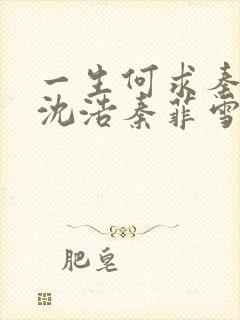 一生何求秦
沈浩秦菲雪
肥皂